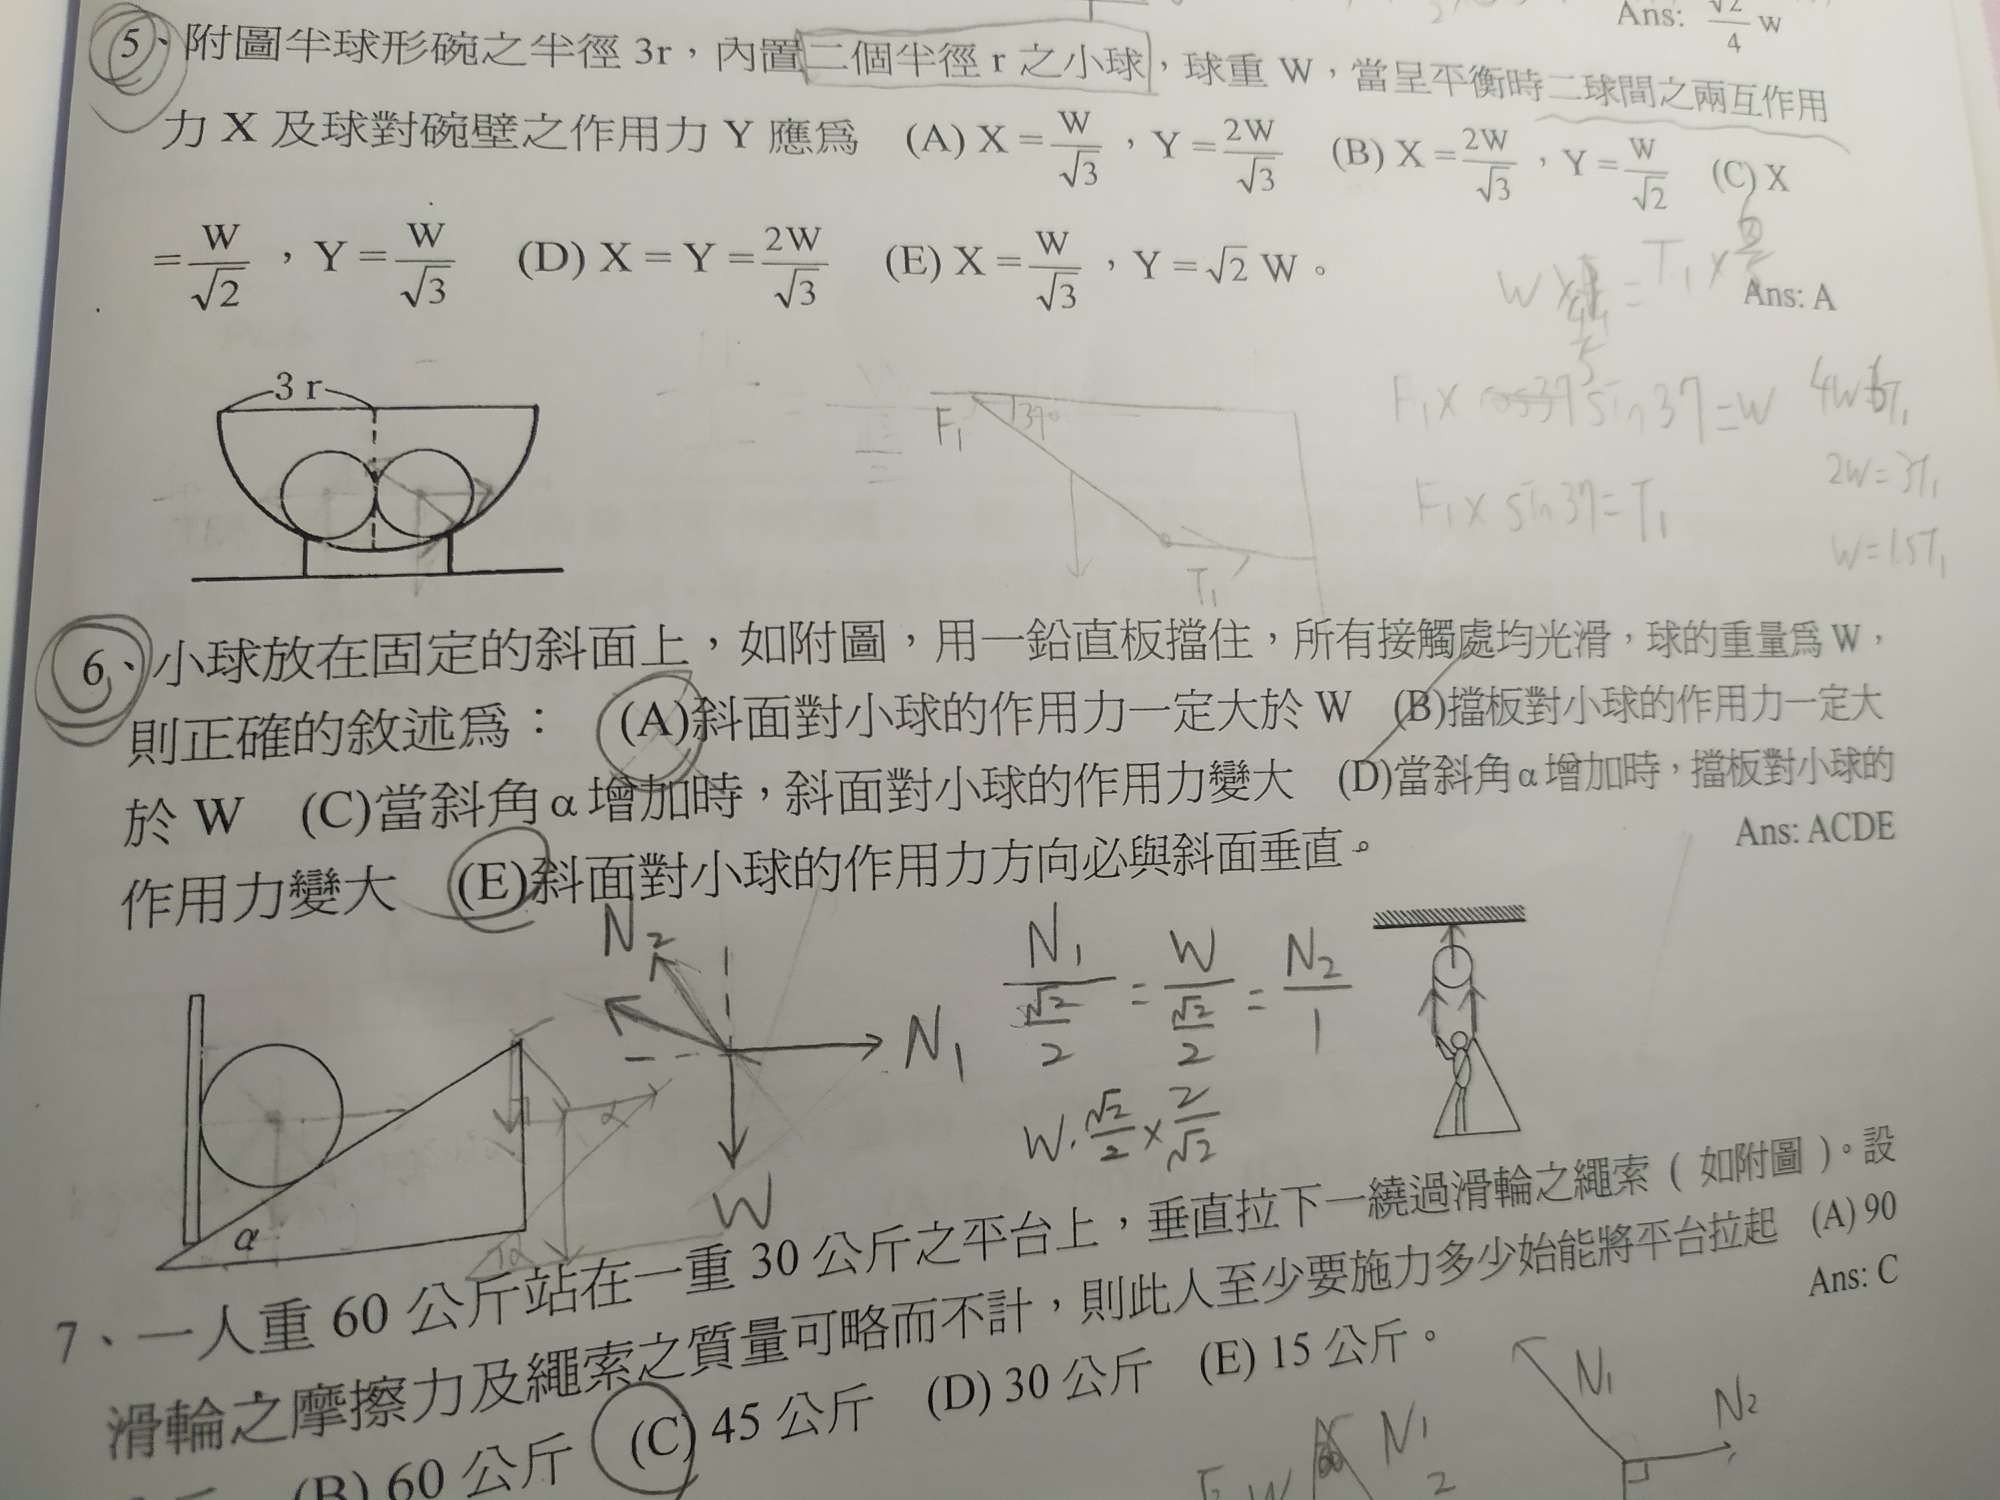 Ans: √2/4 W
5、附圖半球形碗之半徑 3r，內置二個半徑 r 之小球，球重 W，當呈平衡時二球間之兩互作用
力 X 及球對碗壁之作用力 Y 應為 (A) X = W/√3，Y = 2W/√3 (B) X = 2W/√3，Y = W/√2 (C) X
= W/√2，Y = W/√3 (D) X = Y = 2W/√3 (E) X = W/√3，Y = √2 W。
Ans: A
3 r
F₁ 37°
T₁
F₁ x sin37 = W
F₁ x sin37 = T₁
2W = 3T₁
W = 1.5T₁
6、小球放在固定的斜面上，如附圖，用一鉛直板擋住，所有接觸處均光滑，球的重量為 W，
則正確的敘述為： (A)斜面對小球的作用力一定大於 W (B)擋板對小球的作用力一定大
於 W (C)當斜角 α 增加時，斜面對小球的作用力變大 (D)當斜角 α 增加時，擋板對小球的
作用力變大 (E)斜面對小球的作用力方向必與斜面垂直。
Ans: ACDE
N₂
N₁
W
α
α
N₁/(√2/2) = W/(√2/2) = N₂/1
W · √2/2 x 2/√2
7、一人重 60 公斤站在一重 30 公斤之平台上，垂直拉下一繞過滑輪之繩索（如附圖）。設
滑輪之摩擦力及繩索之質量可略而不計，則此人至少要施力多少始能將平台拉起 (A) 90
(B) 60 公斤 (C) 45 公斤 (D) 30 公斤 (E) 15 公斤。
Ans: C
N₁
N₂
N₁
2